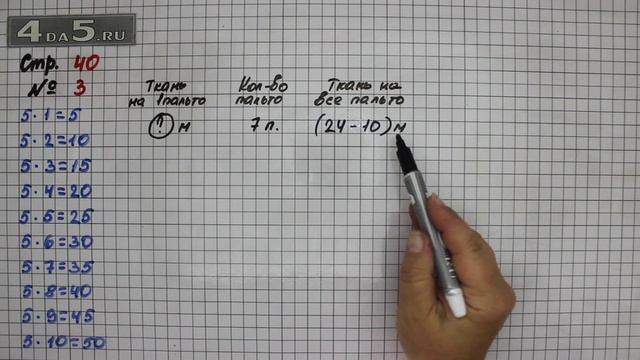 4DA5.RU
Стр. 40
№ 3
5·1=5
5·2=10
5·3=15
5·4=20
5·5=25
5·6=30
5·7=35
5·8=40
5·9=45
5·10=50
Ткань на 1 пальто
Кол-во пальто
Ткань на все пальто
? м
7 п.
(24-10) м